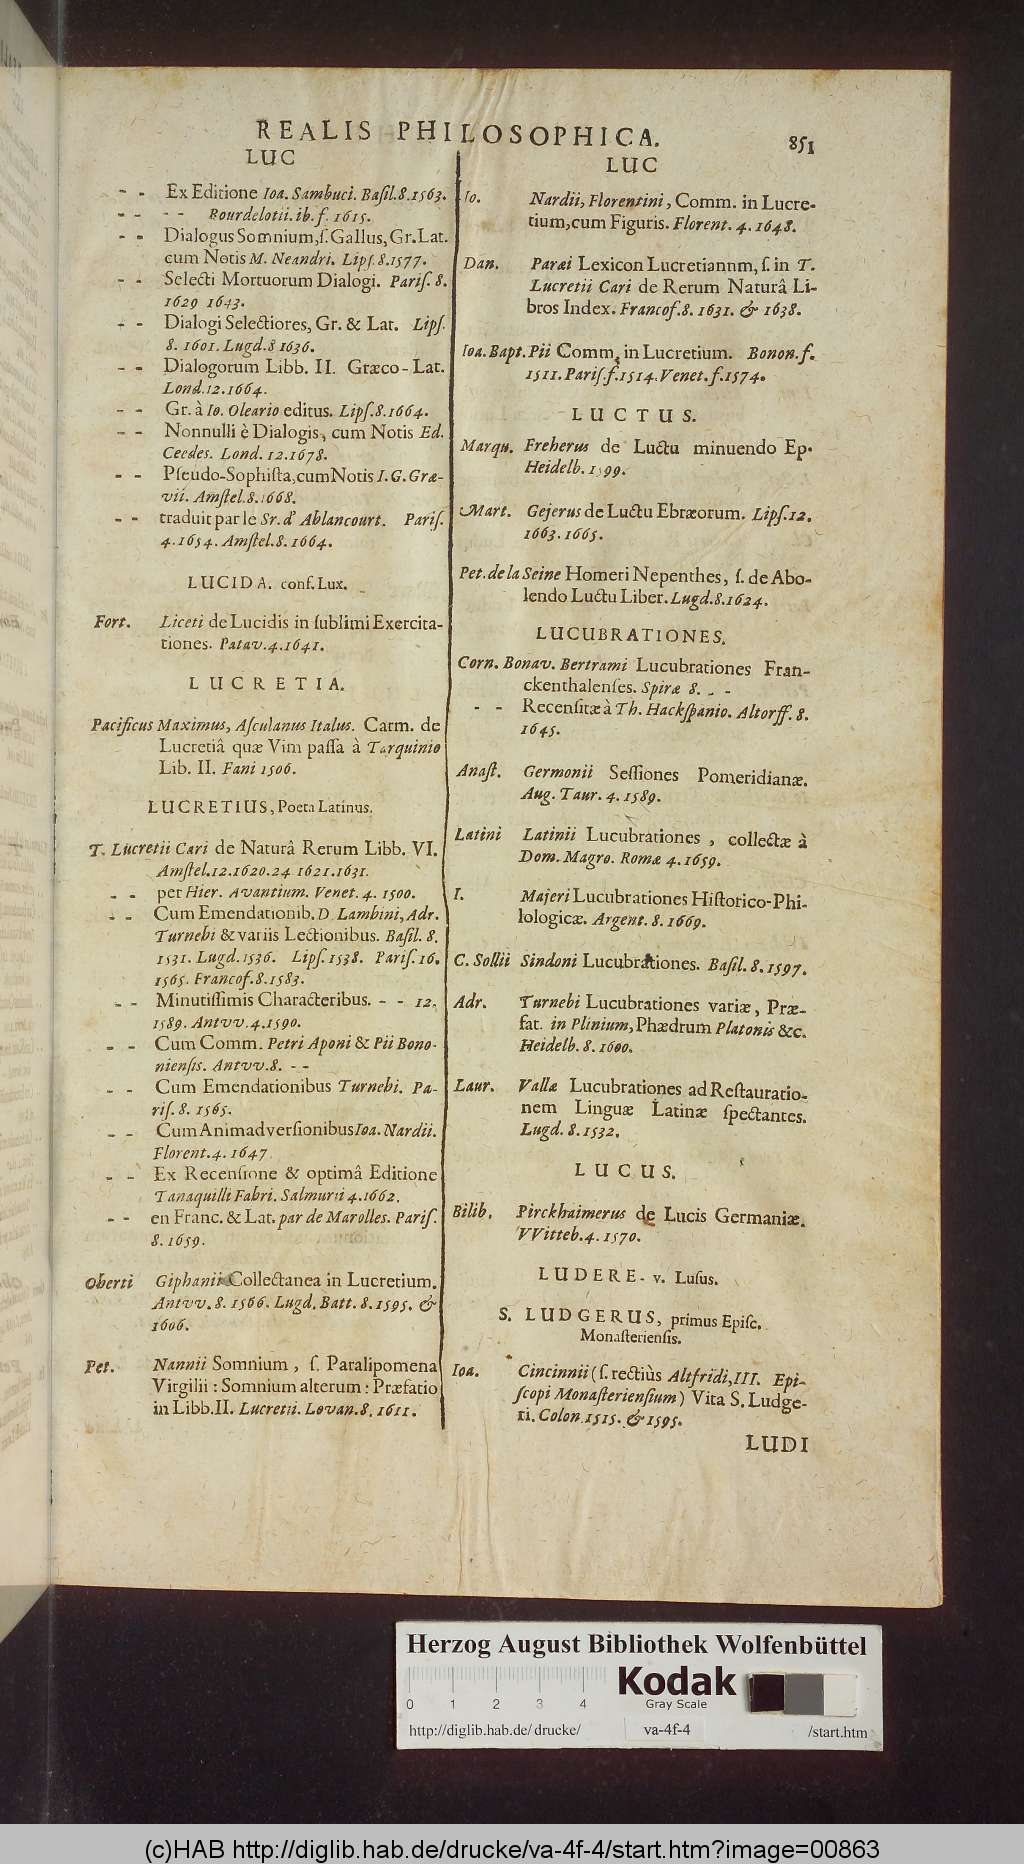 REALIS PHILOSOPHICA. 851
LUC
- - Ex Editione Ioa. Sambuci. Basil. 8. 1563.
- - - - Bourdelotii. ib. f. 1615.
- - Dialogus Somnium, ſ. Gallus, Gr. Lat.
cum Notis M. Neandri. Lipſ. 8. 1577.
- - Selecti Mortuorum Dialogi. Pariſ. 8.
1629 1643.
- - Dialogi Selectiores, Gr. & Lat. Lipſ.
8. 1601. Lugd. 8 1636.
- - Dialogorum Libb. II. Græco-Lat.
Lond. 12. 1664.
- - Gr. à Io. Oleario editus. Lipſ. 8. 1664.
- - Nonnulli è Dialogis, cum Notis Ed.
Cecdes. Lond. 12. 1678.
- - Pſeudo-Sophiſta, cum Notis I. G. Græ-
vii. Amſtel. 8. 1668.
- - traduit par le Sr. d' Ablancourt. Pariſ.
4. 1654. Amſtel. 8. 1664.
LUCIDA. conf. Lux.
Fort. Liceti de Lucidis in ſublimi Exercita-
tiones. Patav. 4. 1641.
LUCRETIA.
Pacificus Maximus, Aſculanus Italus. Carm. de
Lucretiâ quæ Vim paſſa à Tarquinio
Lib. II. Fani 1506.
LUCRETIUS, Poeta Latinus.
T. Lucretii Cari de Naturâ Rerum Libb. VI.
Amſtel. 12. 1620. 24 1621. 1631.
- - per Hier. Avantium. Venet. 4. 1500.
- - Cum Emendationib. D. Lambini, Adr.
Turnebi & variis Lectionibus. Baſil. 8.
1531. Lugd. 1536. Lipſ. 1538. Pariſ. 16.
1565. Francof. 8. 1583.
- - Minutiſſimis Characteribus. - - 12.
1589. Antvv. 4. 1590.
- - Cum Comm. Petri Aponi & Pii Bono-
nienſis. Antvv. 8. - -
- - Cum Emendationibus Turnebi. Pa-
riſ. 8. 1565.
- - Cum Animadverſionibus Ioa. Nardii.
Florent. 4. 1647
- - Ex Recenſione & optimâ Editione
Tanaquilli Fabri. Salmurii 4. 1662.
- - en Franc. & Lat. par de Marolles. Pariſ.
8. 1659.
Oberti Giphanii Collectanea in Lucretium.
Antvv. 8. 1566. Lugd. Batt. 8. 1595. &
1606.
Pet. Nannii Somnium, ſ. Paralipomena
Virgilii : Somnium alterum : Præfatio
in Libb. II. Lucretii. Lovan. 8. 1611.
LUC
Io. Nardii, Florentini, Comm. in Lucre-
tium, cum Figuris. Florent. 4. 1648.
Dan. Paræi Lexicon Lucretiannm, ſ. in T.
Lucretii Cari de Rerum Naturâ Li-
bros Index. Francof. 8. 1631. & 1638.
Ioa. Bapt. Pii Comm, in Lucretium. Bonon. f.
1511. Pariſ. f. 1514. Venet. f. 1574.
LUCTUS.
Marqu. Freherus de Luctu minuendo Ep.
Heidelb. 1599.
Mart. Gejerus de Luctu Ebræorum. Lipſ. 12.
1663. 1665.
Pet. de la Seine Homeri Nepenthes, ſ. de Abo-
lendo Luctu Liber. Lugd. 8. 1624.
LUCUBRATIONES.
Corn. Bonav. Bertrami Lucubrationes Fran-
ckenthalenſes. Spiræ 8. - -
- - Recenſitæ à Th. Hackſpanio. Altorff. 8.
1645.
Anaſt. Germonii Seſſiones Pomeridianæ.
Aug. Taur. 4. 1589.
Latini Latinii Lucubrationes, collectæ à
Dom. Magro. Romæ 4. 1659.
I. Majeri Lucubrationes Hiſtorico-Phi-
lologicæ. Argent. 8. 1669.
C. Sollii Sindoni Lucubrationes. Baſil. 8. 1597.
Adr. Turnebi Lucubrationes variæ, Præ-
fat. in Plinium, Phædrum Platonis &c.
Heidelb. 8. 1600.
Laur. Vallæ Lucubrationes ad Reſtauratio-
nem Linguæ Latinæ ſpectantes.
Lugd. 8. 1532.
LUCUS.
Bilib. Pirckhaimerus de Lucis Germaniæ.
VVitteb. 4. 1570.
LUDERE. v. Luſus.
S. LUDGERUS, primus Epiſc.
Monaſterienſis.
Ioa. Cincinnii (ſ. rectiùs Altfridi, III. Epi-
ſcopi Monaſterienſium) Vita S. Ludge-
ri. Colon 1515. & 1595.
LUDI
Herzog August Bibliothek Wolfenbüttel
Kodak
Gray Scale
0 1 2 3 4
http://diglib.hab.de/drucke/ va-4f-4 /start.htm
(c)HAB http://diglib.hab.de/drucke/va-4f-4/start.htm?image=00863